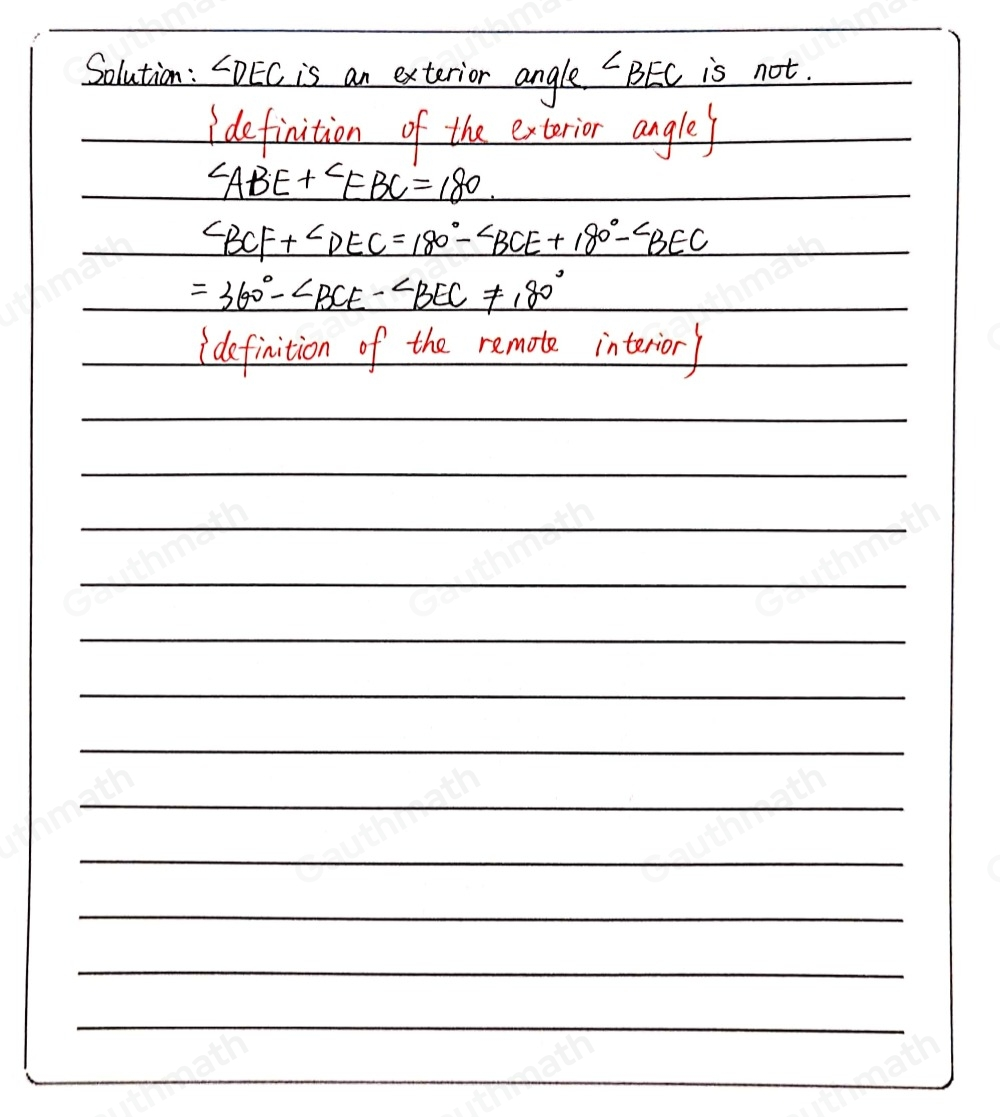 Solution: ∠DEC is an exterior angle. ∠BEC is not.
{definition of the exterior angle}
∠ABE + ∠EBC = 180.
∠BCF + ∠DEC = 180° - ∠BCE + 180° - ∠BEC
= 360° - ∠BCE - ∠BEC ≠ 180°
{definition of the remote interior}
Gauthmath